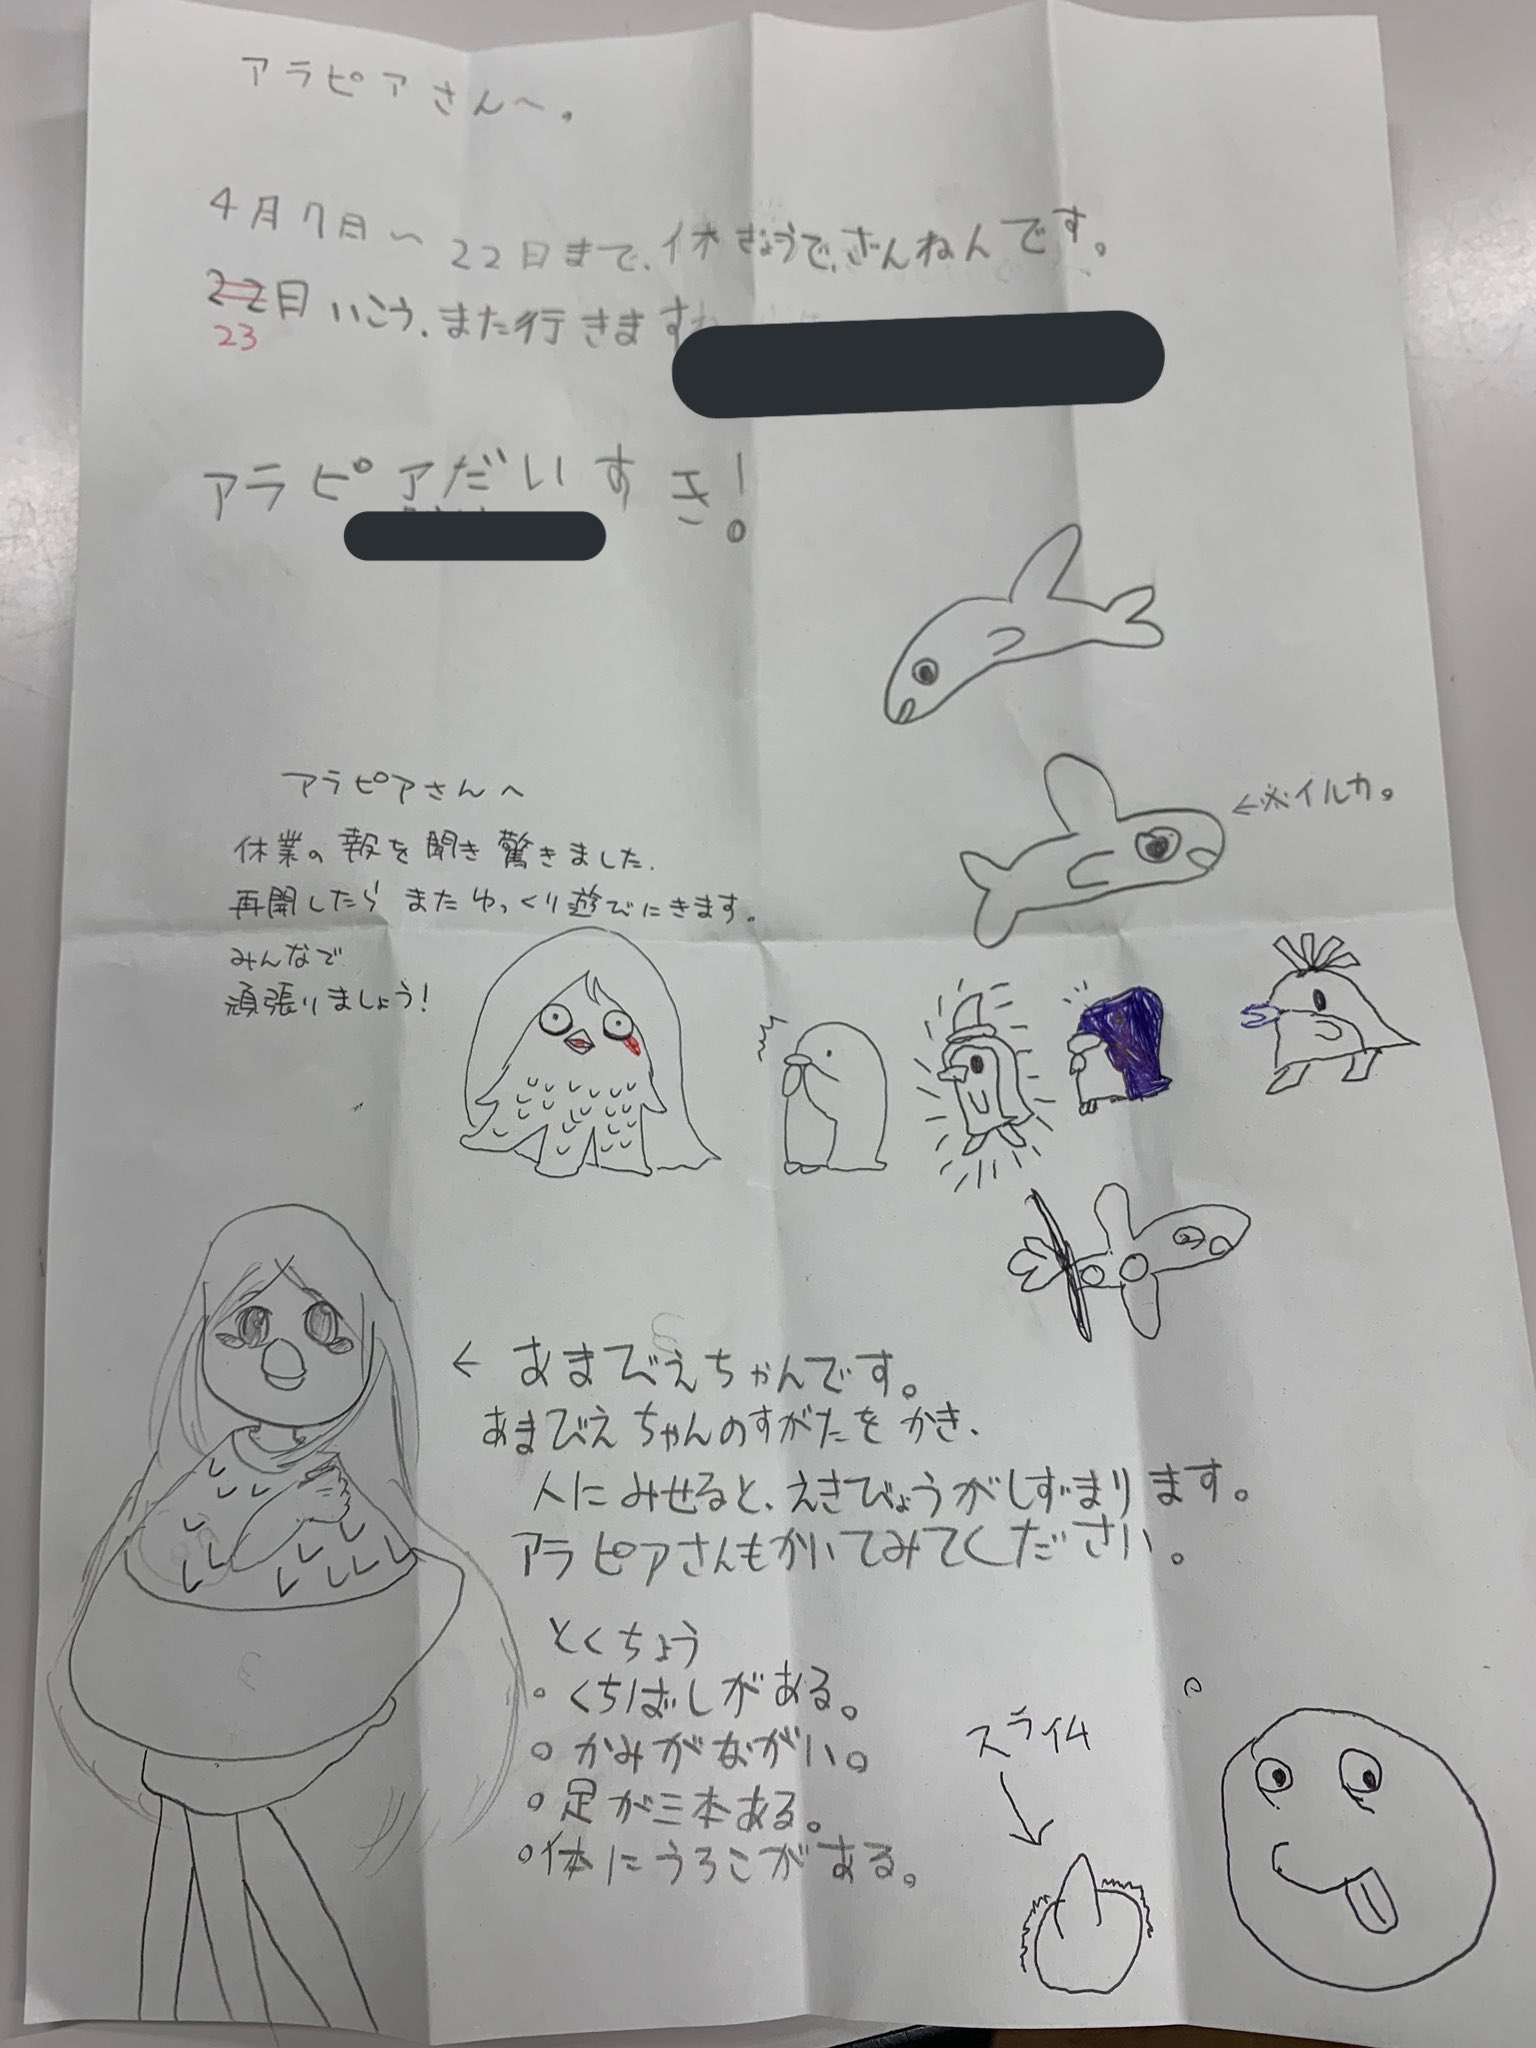 アラピアさんへ。
4月7日〜22日まで、休ぎょうで、ざんねんです。
22日いこう、また行きますね
23
アラピアだいすき!
←※イルカ。
アラピアさんへ
休業の報を聞き驚きました。
再開したら またゆっくり遊びにきます。
みんなで
頑張りましょう!
← あまびえちゃんです。
あまびえちゃんのすがたをかき、
人にみせると、えきびょうがしずまります。
アラピアさんもかいてみてください。
とくちょう
・くちばしがある。
・かみがながい。
・足が三本ある。
・体にうろこがある。
スライム